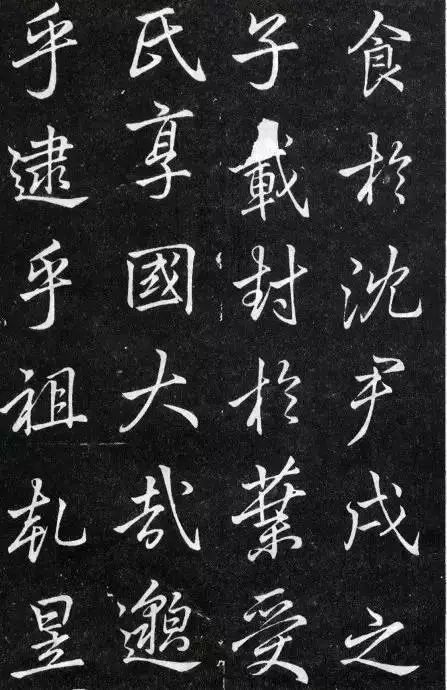 食於沈尹戌之
子載封於葉受
氏享國大哉邈
乎逮乎祖乾昱